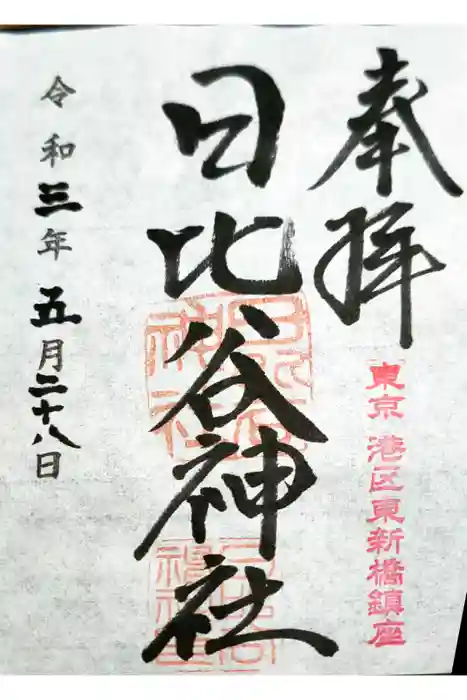 奉拝
東京港区東新橋鎮座
日比谷神社
令和三年五月二十八日